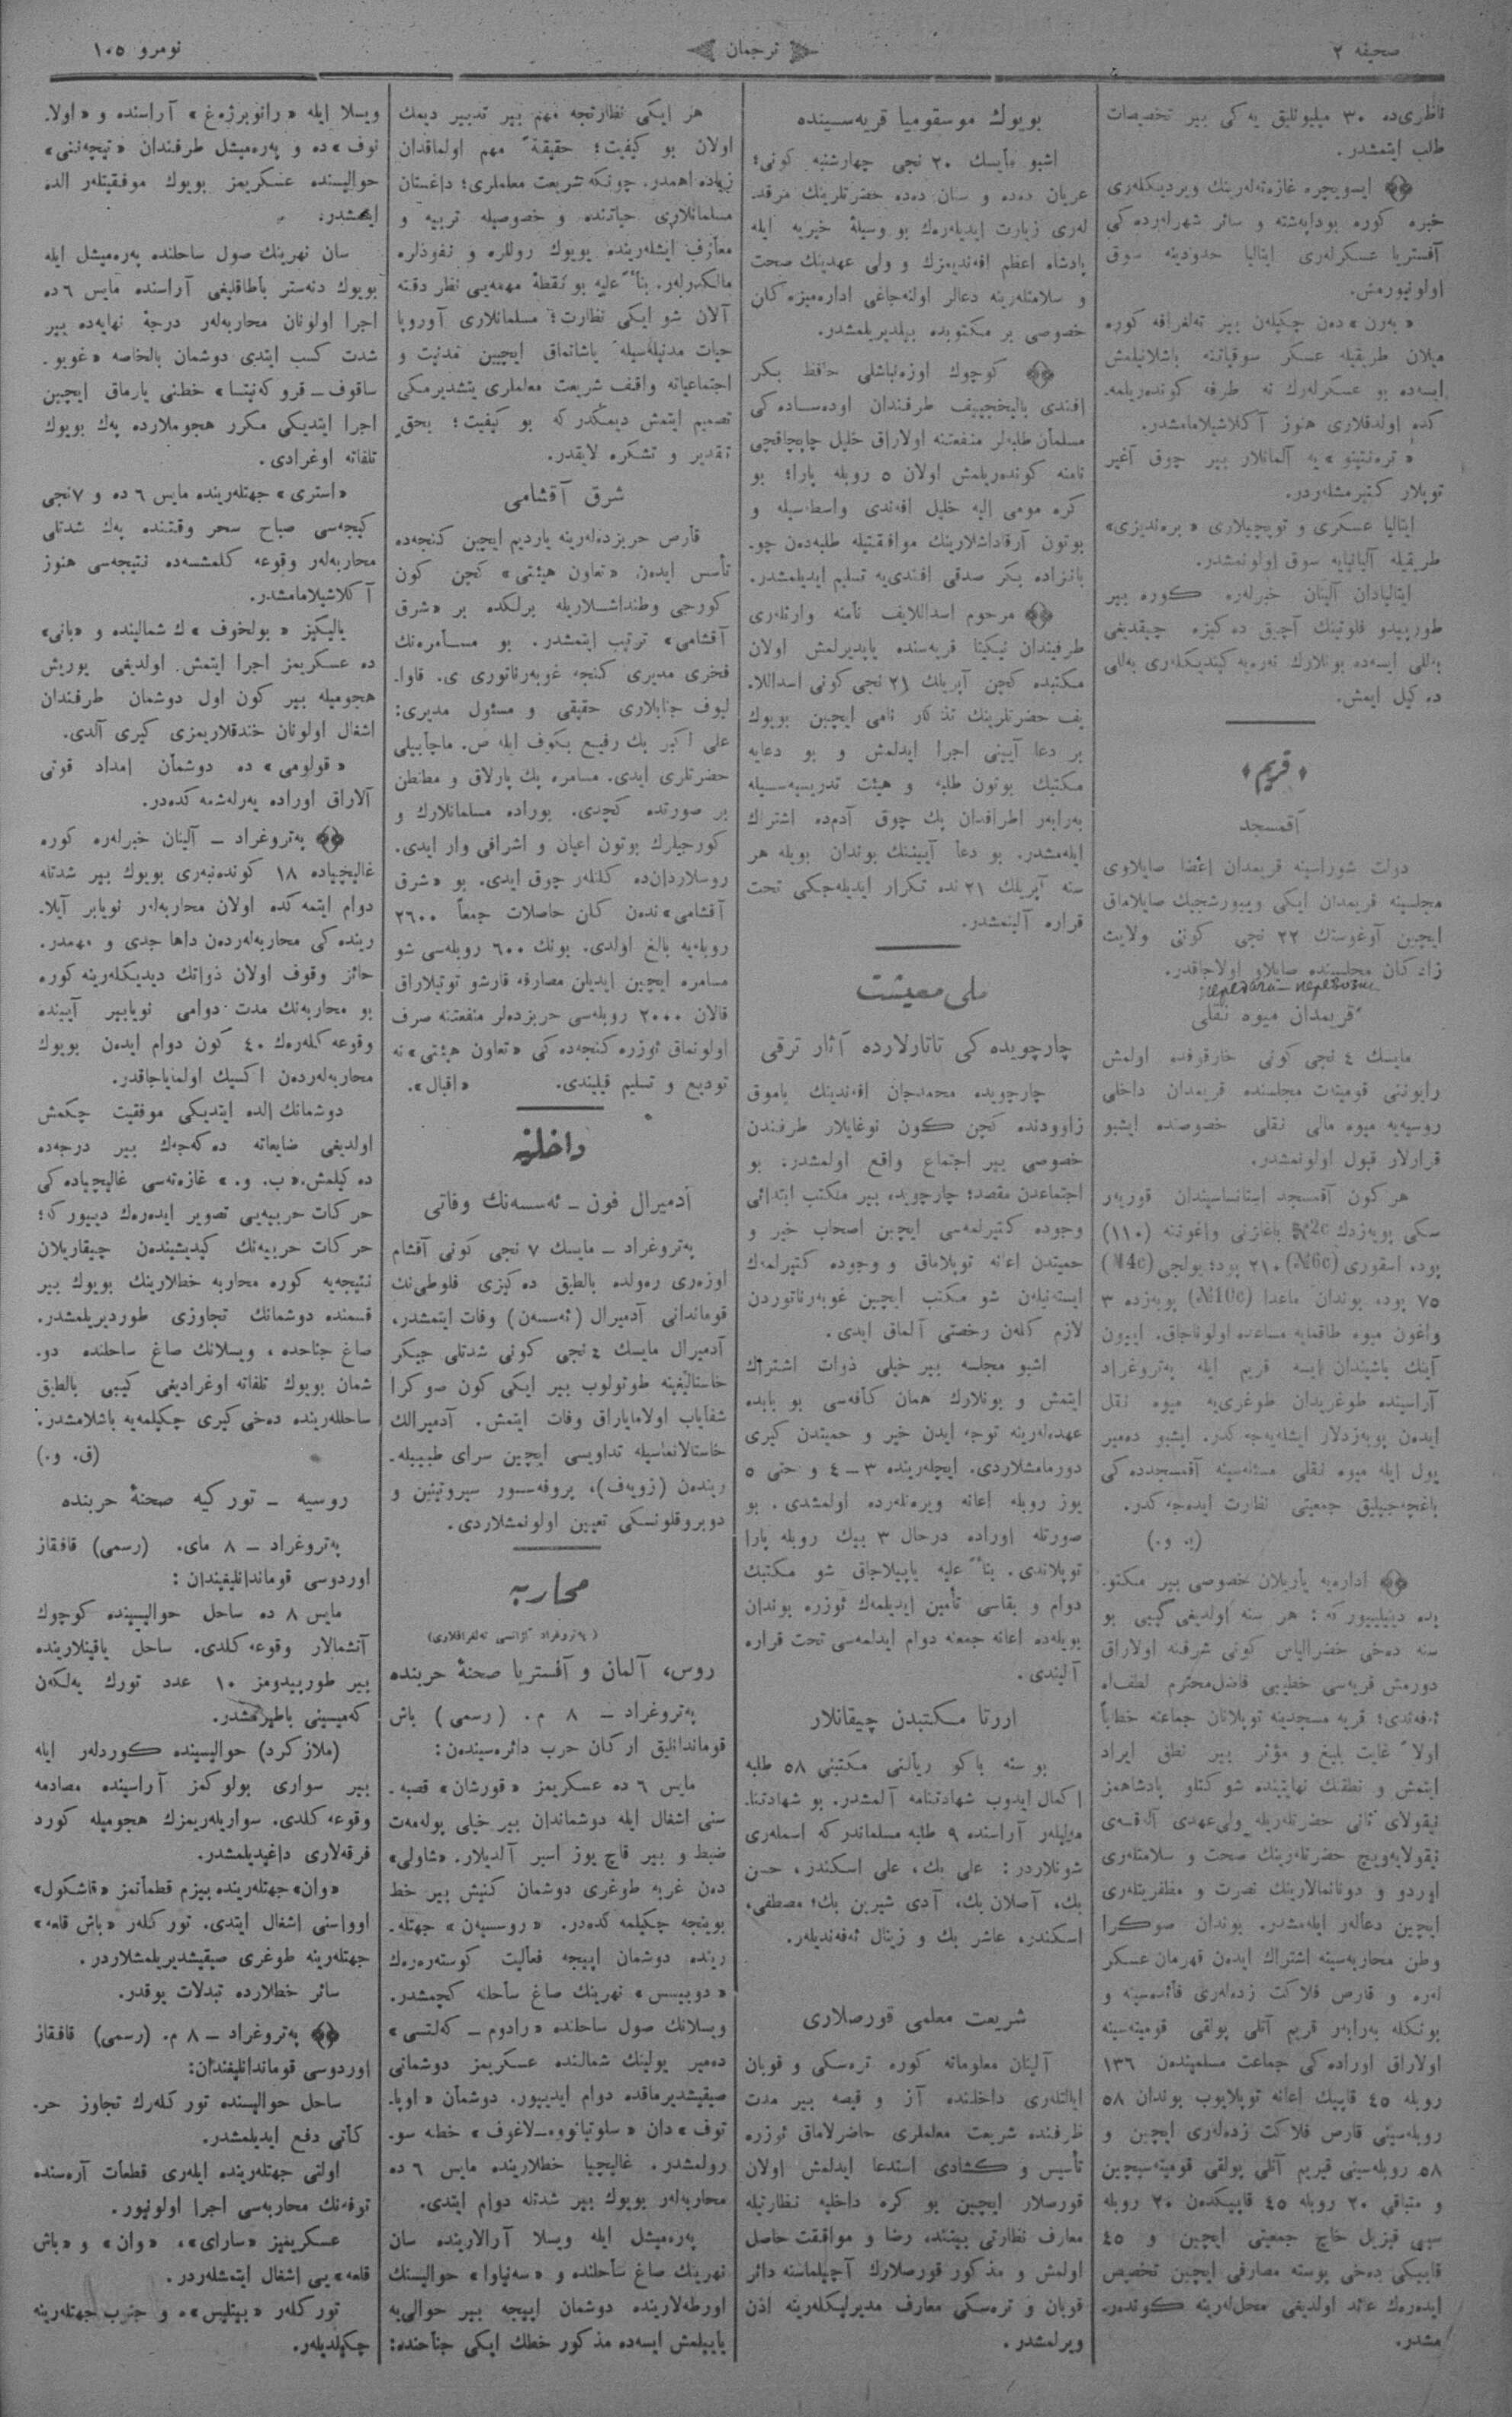 صحیفه ٢
ترجمان
نومرو ١٠٥
ناظری‌ده ٣٠ میلیونلیق یه‌کی بیر تخصیصات
طلب ایتمشدر.
ایسویچره غازه‌ته‌لەرینك ویردیكلەری
خبره كوره بوداپەشته و سائر شهرلەرده‌كی
آفستریا عسكرلەری ایتالیا حدودینه سوق
اولونیورمش.
«بەرن» دەن چكیلەن بیر تەلغرافه كوره
میلان طریقیله عسكر سوقیاتنه باشلانیلمش
ایسه‌ده بو عسكرلەرك نه طرفه كونده‌ریلمه‌
كده اولدقلاری هنوز آكلاشیلامامشدر.
«تره‌نتینو» یه آلمانلار بیر چوق آغیر
توپلار كتیرمشلەردر.
ایتالیا عسكری و توپچیلاری «بره‌ندیزی»
طریقیله آلبانیایه سوق اولونمشدر.
ایتالیادان آلینان خبرلەره كوره بیر
طورپیدو فلوتینك آچیق ده‌كیزه چیقدیغی
بەللی ایسه‌ده بونلارك نەره‌یه كیتدیكلەری بەللی
ده‌كیل ایمش.
قریم
آقمسجد
دولت شوراسینه قریمدان اعضا صایلاوی
مجلسینه قریمدان ایكی ویبورشچیك صایلاماق
ایچین آوغوستك ٢٢ نجی كونی ولایت
زادكان مجلسنده صایلاو اولاجاقدر.
قریمدان میوه نقلی
مایسك ٤ نجی كونی خارقوفده اولمش
رایوننی قومیتەت مجلسنده قریمدان داخلی
روسیه‌یه میوه مالی نقلی خصوصنده ایشبو
قرارلار قبول اولونمشدر.
هر كون آقمسجد استانساسیندان قوریەر
سكی پویه‌زدك №2c باغاژنی واغوننه (١١٠)
پود، اسقوری (№6c) ٢١٠ پود؛ یولجی (№4c)
٧٥ پود، بوندان ماعدا (№10c) پویه‌زده ٣
واغون میوه طاقمایه مساعده اولوناجاق. اییون
آینك باشیندان ایسه قریم ایله پەتروغراد
آراسینده طوغریدان طوغری‌یه میوه نقل
ایدەن پویه‌زدلار ایشله‌یه‌جه‌كدر. ایشبو ده‌میر
یول ایله میوه نقلی مسئله‌سینه آقمسجدده‌كی
باغچه‌جیلیق جمعیتی نظارت ایده‌جه‌كدر.
(پ. و.)
اداره‌یه یازیلان خصوصی بیر مكتو‌
بده دینیلییوركه: هر سنه اولدیغی كیبی بو
سنه دەخی خضرالیاس كونی شرفنه اولاراق
دورمش قریه‌سی خطیبی فاضل محترم لطف‌الله
ئەفەندی؛ قریه مسجدینه توپلانان جماعته خطاباً
اولاً غایت بلیغ و مؤثر بیر نطق ایراد
ایتمش و نطقنك نهایتینده شوكتلو پادشاهمز
نیقولای ثانی حضرتلەریله ولی‌عهدی آله‌قسەی
نیقولایه‌ویچ حضرتلەرینك صحت و سلامتلەری
اوردو و دونانمالارینك نصرت و مظفریتلەری
ایچین دعالەر ایله‌مشدر. بوندان صوكرا
وطن محاربه‌سینه اشتراك ایدەن قهرمان عسكر
لەره و قارص فلاكت زده‌لەری فائده‌سینه و
بونكله به‌رابەر قریم آتلی پولقی قومیته‌سینه
اولاراق اوراده‌كی جماعت مسلمیندەن ١٣٦
روبله ٤٥ قاپیك اعانه توپلایوب بوندان ٥٨
روبله‌سینی قارص فلاكت زده‌لەری ایچین و
٥٨ روبله‌سینی قیریم آتلی پولقی قومیته‌سیچین
و متباقی ٢٠ روبله ٤٥ قاپیكدەن ٢٠ روبله
سی‌ی قیزیل خاچ جمعیتی ایچین و ٤٥
قاپیكی دەخی پوسته مصارفی ایچین تخصیص
ایده‌رەك عائد اولدیغی محل‌لەرینه كوندەر‌
مشدر.
بویوك موسقومیا قریه‌سینده
اشبو مایسك ٢٠ نجی چهارشنبه كونی؛
عریان دده و سنان دده حضرتلرینك مرقد‌
لەری زیارت ایدیله‌رەك بو وسیلۀ خیریه ایله
پادشاه اعظم افەندیمزك و ولی عهدینك صحت
و سلامتلەرینه دعالر اولنه‌جاغی اداره‌میزه كان
خصوصی بر مكتوبده بیلدیریلمشدر.
كوچوك اوزه‌نباشلی حافظ بكر
افندی بالیخچییف طرفندان اوده‌ساده‌كی
مسلمان طلبه‌لر منفعتنه اولاراق خلیل چاپچاقچی
نامنه كونده‌ریلمش اولان ٥ روبله پارا؛ بو
كره مومی الیه خلیل افەندی واسطه‌سیله و
بوتون آرقاداشلارینك موافقتیله طلبه‌دەن چو‌
بانزاده بكر صدقی افندی‌یه تسلیم ایدیلمشدر.
مرحوم اسداللایف نامنه وارثلەری
طرفیندان نیكیتا قریه‌سنده یاپدیرلمش اولان
مكتبده كچن آپریلك ٢١ نجی كونی اسداللا‌
یف حضرتلرینك تذكار نامی ایچین بویوك
بر دعا آیینی اجرا ایدلمش و بو دعایه
مكتبك بوتون طلبه و هیئت تدریسیه‌سیله
به‌رابەر اطرافدان پك چوق آدم‌ده اشتراك
ایله‌مشدر. بو دعا آییننك بوندان بویله هر
سنه آپریلك ٢١ نده تكرار ایدیله‌جكی تحت
قراره آلینمشدر.
ملی معیشت
چارچویده كی تاتارلارده آثار ترقی
چارچویده محمدجان افەندینك پاموق
زاوودنده كچن كون نوغایلار طرفندن
خصوصی بیر اجتماع واقع اولمشدر. بو
اجتماعدن مقصد؛ چارچویده بیر مكتب ابتدائی
وجوده كتیرلمه‌سی ایچین اصحاب خیر و
حمیتدن اعانه توپلاماق و وجوده كتیرلمه‌ك
ایسته‌نیلەن شو مكتب ایچین غوبه‌رناتوردن
لازم كلەن رخصتی آلماق ایدی.
اشبو مجلسه بیر خیلی ذوات اشتراك
ایتمش و بونلارك همان كافه‌سی بو بابده
عهده‌لەرینه توجه ایدن خیر و حمیتدن كیری
دورمامشلاردی. ایچلەرینده ٣ــ٤ و حتی ٥
یوز روبله اعانه ویره‌نلەرده اولمشدی. بو
صورتله اوراده درحال ٣ بیك روبله پارا
توپلاندی. بناءً علیه یاپیلاجاق شو مكتبك
دوام و بقاسی تأمین ایدیلمه‌ك ئوزره بوندان
بویله‌ده اعانه جمعنه دوام ایدلمه‌سی تحت قراره
آلیندی.
اورتا مكتبدن چیقانلار
بو سنه باكو ریالنی مكتبنی ٥٨ طلبه
اكمال ایدوب شهادتنامه آلمشدر. بو شهادتنا‌
مه‌لیلەر آراسنده ٩ طلبه مسلماندركه اسملەری
شونلاردر: علی بك، علی اسكندر، حسن
بك، آصلان بك، آدی شیرین بك؛ مصطفی،
اسكندر، عاشر بك و زینال ئەفەندیلەر.
شریعت معلمی قورصلاری
آلینان معلوماته كوره تره‌سكی و قوبان
ایالتلەری داخلنده آز و قیصه بیر مدت
ظرفنده شریعت معلملری حاضرلاماق ئوزره
تأسیس و كشادی استدعا ایدلمش اولان
قورسلار ایچین بو كره داخلیه نظارتیله
معارف نظارتی بیننده رضا و موافقت حاصل
اولمش و مذكور قورصلارك آچیلماسنه دائر
قوبان و تره‌سكی معارف مدیرلیكلەرینه اذن
ویرلمشدر.
هر ایكی نظارتجه مهم بیر تدبیر دیمك
اولان بو كیفیت؛ حقیقةً مهم اولماقدان
زیاده اهمدر. چونكه شریعت معلملری؛ داغستان
مسلمانلاری حیاتنده و خصوصیله تربیه و
معارف ایشلەرینده بویوك روللره و نفوذلره
مالكدرلەر. بناءً علیه بو نقطۀ مهمه‌یی نظر دقته
آلان شو ایكی نظارت؛ مسلمانلاری آوروپا
حیات مدنیله‌سیله یاشاتماق ایچین مدنیت و
اجتماعیاته واقف شریعت معلملری یتشدیرمكی
تصمیم ایتمش دیمكدركه بو كیفیت؛ بحق
تقدیر و تشكره لایقدر.
شرق آقشامی
قارص حریزده‌لەرینه یاردیم ایچین كنجه‌ده
تأسس ایدەن «تعاون هیئتی» كچن كون
كورجی وطنداشلاریله برلكده بر «شرق
آقشامی» ترتیب ایتمشدر. بو مسامره‌نك
فخری مدیری كنجه غوبه‌رناتوری ی. قاوا‌
لیوف جنابلاری حقیقی و مسئول مدیری:
علی اكبر بك رفیع بكوف ایله ص. ماچابیلی
حضرتلری ایدی. مسامره پك پارلاق و مطنطن
بر صورتده كچدی. بوراده مسلمانلارك و
كورجیلرك بوتون اعیان و اشرافی وار ایدی.
روسلاردان‌ده كلنلەر چوق ایدی. بو «شرق
آقشامی» ندەن كان حاصلات جمعاً ٢٦٠٠
روبله‌یه بالغ اولدی. بونك ٦٠٠ روبله‌سی شو
مسامره ایچین ایدیلن مصارفه قارشو توتیلاراق
قالان ٢٠٠٠ روبله‌سی حریزده‌لر منفعتنه صرف
اولونماق ئوزره كنجه‌ده‌كی «تعاون هیئتی» نه
تودیع و تسلیم قیلیندی. «اقبال».
داخلیه
آدمیرال فون ــ ئەسسەنك وفاتی
پەتروغراد ــ مایسك ٧ نجی كونی آقشام
اوزەری ره‌ولده بالطق ده‌كیزی فلوطی‌نك
قوماندانی آدمیرال (ئەسسەن) وفات ایتمشدر،
آدمیرال مایسك ٤ نجی كونی شدتلی جیكر
خاستالیغینه طوتولوب بیر ایكی كون صوكرا
شفایاب اولامایاراق وفات ایتمش. آدمیرالك
خاستالانماسیله تداویسی ایچین سرای طبیبله‌
ریندەن (زویه‌ف)، پروفه‌سسور سیروتینین و
دوبروقلونسكی تعیین اولونمشلاردی.
محاربه
(پەتروغراد آژانسی تەلغرافلاری)
روس، آلمان و آفستریا صحنۀ حربنده
پەتروغراد ــ ٨ م. (رسمی) باش
قوماندانلیق اركان حرب دائره‌سیندەن:
مایس ٦ ده عسكریمز «قورشان» قصبه‌
سنی اشغال ایله دوشماندان بیر خیلی پوله‌مەت
ضبط و بیر قاچ یوز اسیر آلدیلار. «شاولی»
دەن غربه طوغری دوشمان كنیش بیر خط
بوینجه چكیلمه‌كده‌در. «روسسیەن» جهتله‌
رینده دوشمان اییجه فعالیت كوسته‌ره‌رەك
«دوبیسس» نهرینك صاغ ساحلنه كچمشدر.
ویسلانك صول ساحلنده «رادوم ــ كەلتسی»
ده‌میر یولینك شمالنده عسكریمز دوشمانی
صیقیشدیرماقده دوام ایدییور. دوشمان «اوپا‌
توف» دان «سلوتپانووه‌ــلاغوف» خطنه سو‌
رولمشدر. غالیچیا خطلارینده مایس ٦ ده
محاربه‌لەر بویوك بیر شدتله دوام ایتدی.
پەره‌میشل ایله ویسلا آرالارینده سان
نهرینك صاغ ساحلنده و «سەنیاوا» حوالیسنك
اورطه‌لارینده دوشمان اییجه بیر حوالی‌یه
یاییلمش ایسه‌ده مذكور خطك ایكی جناحنده:
ویسلا ایله «رانوبرژه‌غ» آراسنده و «اولا‌
نوف» ده و پەره‌میشل طرفندان «تیچەننی»
حوالیسنده عسكریمز بویوك موفقیتلەر الده
ایتمشدر.
سان نهرینك صول ساحلنده پەره‌میشل ایله
بویوك دنەستر باطاقلیغی آراسنده مایس ٦ ده
اجرا اولونان محاربه‌لەر درجۀ نهایه‌ده بیر
شدت كسب ایتدی دوشمان بالخاصه «غوبو‌
ساقوف ــ قروكەنیتسا» خطنی یارماق ایچین
اجرا ایتدیكی مكرر هجوملارده پەك بویوك
تلفاته اوغرادی.
«استری» جهتلەرینده مایس ٦ ده و ٧ نجی
كیجه‌سی صباح سحر وقتنده پەك شدتلی
محاربه‌لەر وقوعه كلمشسه‌ده نتیجه‌سی هنوز
آكلاشیلامامشدر.
یالیكیز «بولخوف» ك شمالینده و «یانی»
ده عسكریمز اجرا ایتمش اولدیغی یوریش
هجومیله بیر كون اول دوشمان طرفندان
اشغال اولونان خندقلاریمزی كیری آلدی.
«قولومی» ده دوشمان امداد قوتی
آلاراق اوراده یەرله‌شمه‌كده‌در.
پەتروغراد ــ آلینان خبرلەره كوره
غالیچیاده ١٨ كوندەنبەری بویوك بیر شدتله
دوام ایتمه‌كده اولان محاربه‌لەر نویابر آیلا‌
رینده‌كی محاربه‌لەردەن داها جدی و مهمدر.
حائز وقوف اولان ذواتك دیدیكلەرینه كوره
بو محاربه‌نك مدت دوامی نویابیر آیینده
وقوعه كله‌رەك ٤٠ كون دوام ایدەن بویوك
محاربه‌لەردەن اكسیك اولمایاجاقدر.
دوشمانك الده ایتدیكی موفقیت چكمش
اولدیغی ضایعاته ده‌كه‌جەك بیر درجه‌ده
ده‌كیلمش. «ب. و.» غازه‌ته‌سی غالیچیاده‌كی
حركات حربیه‌یی تصویر ایده‌رەك دییوركه؛
حركات حربیه‌نك كیدیشیندەن چیقاریلان
نتیجه‌یه كوره محاربه خطلارینك بویوك بیر
قسمنده دوشمانك تجاوزی طوردیریلمشدر.
صاغ جناحده، ویسلانك صاغ ساحلنده دو‌
شمان بویوك تلفاته اوغرادیغی كیبی بالطق
ساحللەرینده دەخی كیری چكیلمه‌یه باشلامشدر.
(ق. و.)
روسیه ــ توركیه صحنۀ حربنده
پەتروغراد ــ ٨ مای. (رسمی) قافقاز
اوردوسی قوماندانلیغیندان:
مایس ٨ ده ساحل حوالیسینده كوچوك
آتشمالار وقوعه كلدی. ساحل یاقینلارینده
بیر طورپیدومز ١٠ عدد تورك یەلكەن
كەمیسینی باطیرمشدر.
(ملازكرد) حوالیسینده كوردلەر ایله
بیر سواری بولوكمز آراسینده مصادمه
وقوعه كلدی. سواریلەریمزك هجومیله كورد
فرقه‌لاری داغیدیلمشدر.
«وان» جهتلەرینده بیزم قطعأتمز «قاشكول»
اوواسنی اشغال ایتدی. توركلەر «باش قلعه»
جهتلەرینه طوغری صیقیشدیریلمشلاردر.
سائر خطلارده تبدلات یوقدر.
پەتروغراد ــ ٨ م. (رسمی) قافقاز
اوردوسی قوماندانلیغندان:
ساحل حوالیسنده توركلەرك تجاوز حر‌
كاتی دفع ایدیلمشدر.
اولتی جهتلەرینده ایلەری قطعات آره‌سنده
توفەنك محاربه‌سی اجرا اولونیور.
عسكریمیز «سارای»، «وان» و «باش
قلعه» یی اشغال ایتمشلەردر.
توركلەر «بیتلیس»ە و جنوب جهتلەرینه
چكیلدیلەر.